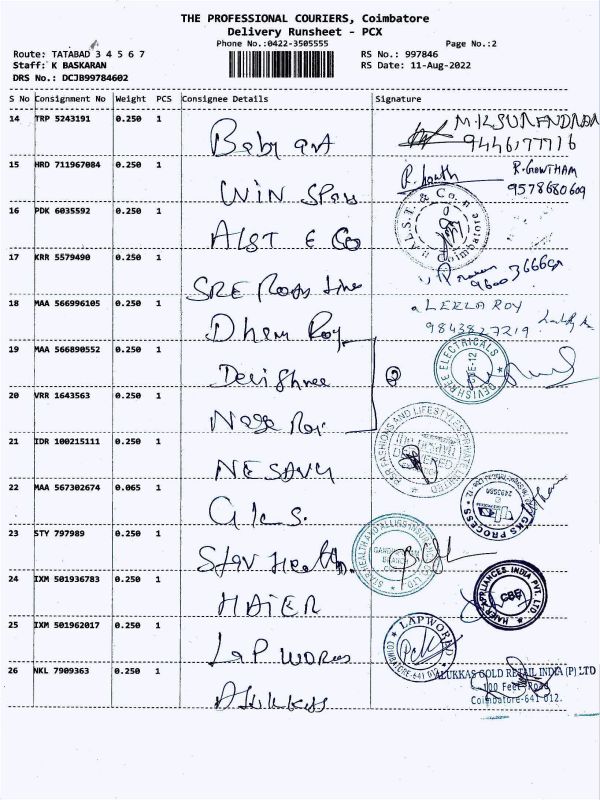 THE PROFESSIONAL COURIERS, Coimbatore
Delivery Runsheet - PCX
Phone No.:0422-3505555 Page No.:2
Route: TATABAD 3 4 5 6 7 RS No.: 997846
Staff: K BASKARAN RS Date: 11-Aug-2022
DRS No.: DCJB99784602
S No Consignment No Weight PCS Consignee Details Signature
14 TRP 5243191 0.250 1
M.K SURENDRAN
9446177716
Baby art
15 HRD 711967084 0.250 1
R. GOWTHAM
9578680609
WIN
16 PDK 6035592 0.250 1
ALST & Co
17 KRR 5579490 0.250 1
SRE Roas Line
18 MAA 566996105 0.250 1
LEELA ROY
9843827219
Dhem Roy
19 MAA 566890552 0.250 1
DEVISHREE ELECTRICALS
Devi Shree
20 VRR 1643563 0.250 1
21 IDR 100215111 0.250 1
FASHIONS AND LIFESTYLES PRIVATE LIMITED
NESAVU
22 MAA 567302674 0.065 1
GKS PROCESS
G K S.
23 STY 797989 0.250 1
STAR HEALTH AND ALLIED INSURANCE CO LTD
Star Health
24 IXM 501936783 0.250 1
HAIER APPLIANCES INDIA PVT. LTD.
CBE
HAIER
25 IXM 501962017 0.250 1
LAP WORLD
COIMBATORE-641 012
LAP WORLD
26 NKL 7909363 0.250 1
ALUKKAS GOLD RETAIL INDIA (P) LTD
100 Feet Road
Coimbatore-641 012.
Alukkas